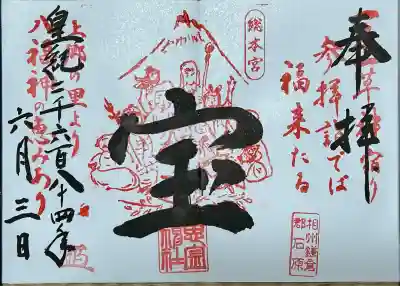 奉拝
参拝詣でば
福来たる
総本宮
宝
相州鎌倉
郡石原
上郷の里より
八福神の恵みあり
皇紀二千六百八十四年
六月三日